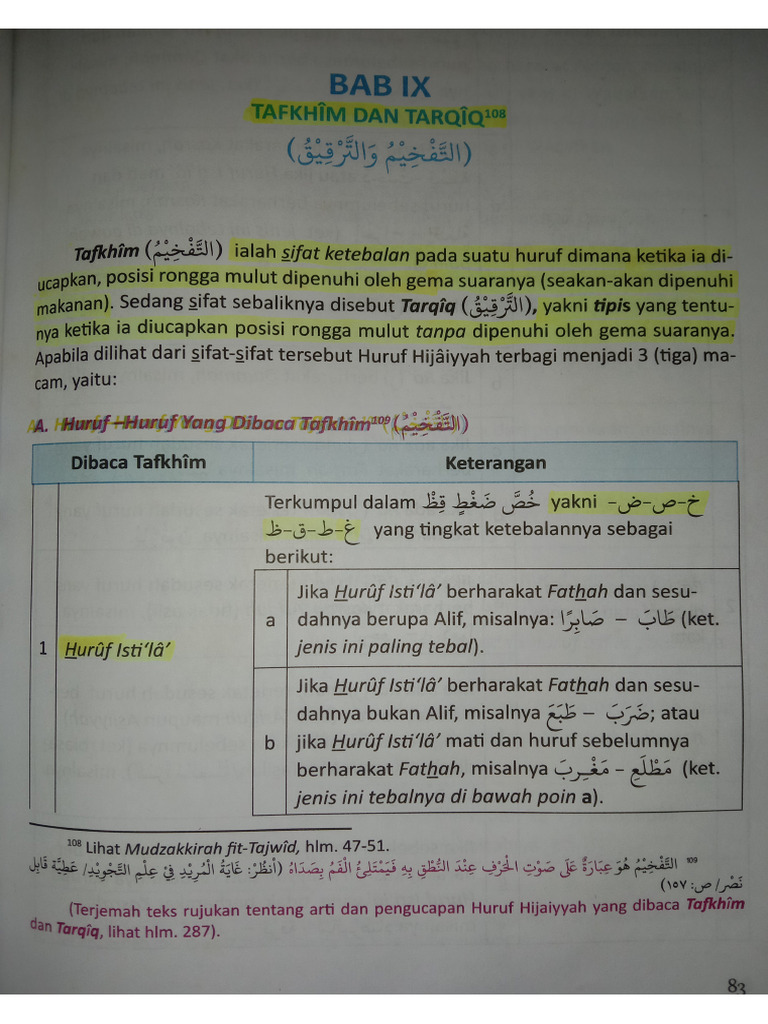 BAB IX
TAFKHÎM DAN TARQÎQ¹⁰⁸
(التَّفْخِيْمُ وَالتَّرْقِيْقُ)
Tafkhîm (التَّفْخِيْمُ) ialah sifat ketebalan pada suatu huruf dimana ketika ia di-
ucapkan, posisi rongga mulut dipenuhi oleh gema suaranya (seakan-akan dipenuhi
makanan). Sedang sifat sebaliknya disebut Tarqîq (التَّرْقِيْقُ), yakni tipis yang tentu-
nya ketika ia diucapkan posisi rongga mulut tanpa dipenuhi oleh gema suaranya.
Apabila dilihat dari sifat-sifat tersebut Huruf Hijâiyyah terbagi menjadi 3 (tiga) ma-
cam, yaitu:
A. Huruf –Huruf Yang Dibaca Tafkhîm¹⁰⁹ (التَّفْخِيْمُ)
Dibaca Tafkhîm Keterangan
1 Hurûf Isti‘lâ’
Terkumpul dalam خُصَّ ضَغْطٍ قِظْ yakni خ-ص-ض-
غ-ط-ق-ظ yang tingkat ketebalannya sebagai
berikut:
a
Jika Hurûf Isti‘lâ’ berharakat Fathah dan sesu-
dahnya berupa Alif, misalnya: طَابَ – صَابِرًا (ket.
jenis ini paling tebal).
b
Jika Hurûf Isti‘lâ’ berharakat Fathah dan sesu-
dahnya bukan Alif, misalnya ضَرَبَ – طَبَعَ; atau
jika Hurûf Isti‘lâ’ mati dan huruf sebelumnya
berharakat Fathah, misalnya مَطْلَعِ – مَغْرِبَ (ket.
jenis ini tebalnya di bawah poin a).
¹⁰⁸ Lihat Mudzakkirah fit-Tajwîd, hlm. 47-51.
¹⁰⁹ التَّفْخِيْمُ هُوَ عِبَارَةٌ عَلَى صَوْتِ الْحَرْفِ عِنْدَ النُّطْقِ بِهِ فَيَمْتَلِئُ الْفَمُ بِصَدَاهُ (أُنْظُرْ: غَايَةُ الْمُرِيْدِ فِيْ عِلْمِ التَّجْوِيْدِ/ عَطِيَّة قَابِل
نَصْر/ ص: ١٥٧)
(Terjemah teks rujukan tentang arti dan pengucapan Huruf Hijaiyyah yang dibaca Tafkhîm
dan Tarqîq, lihat hlm. 287).
83